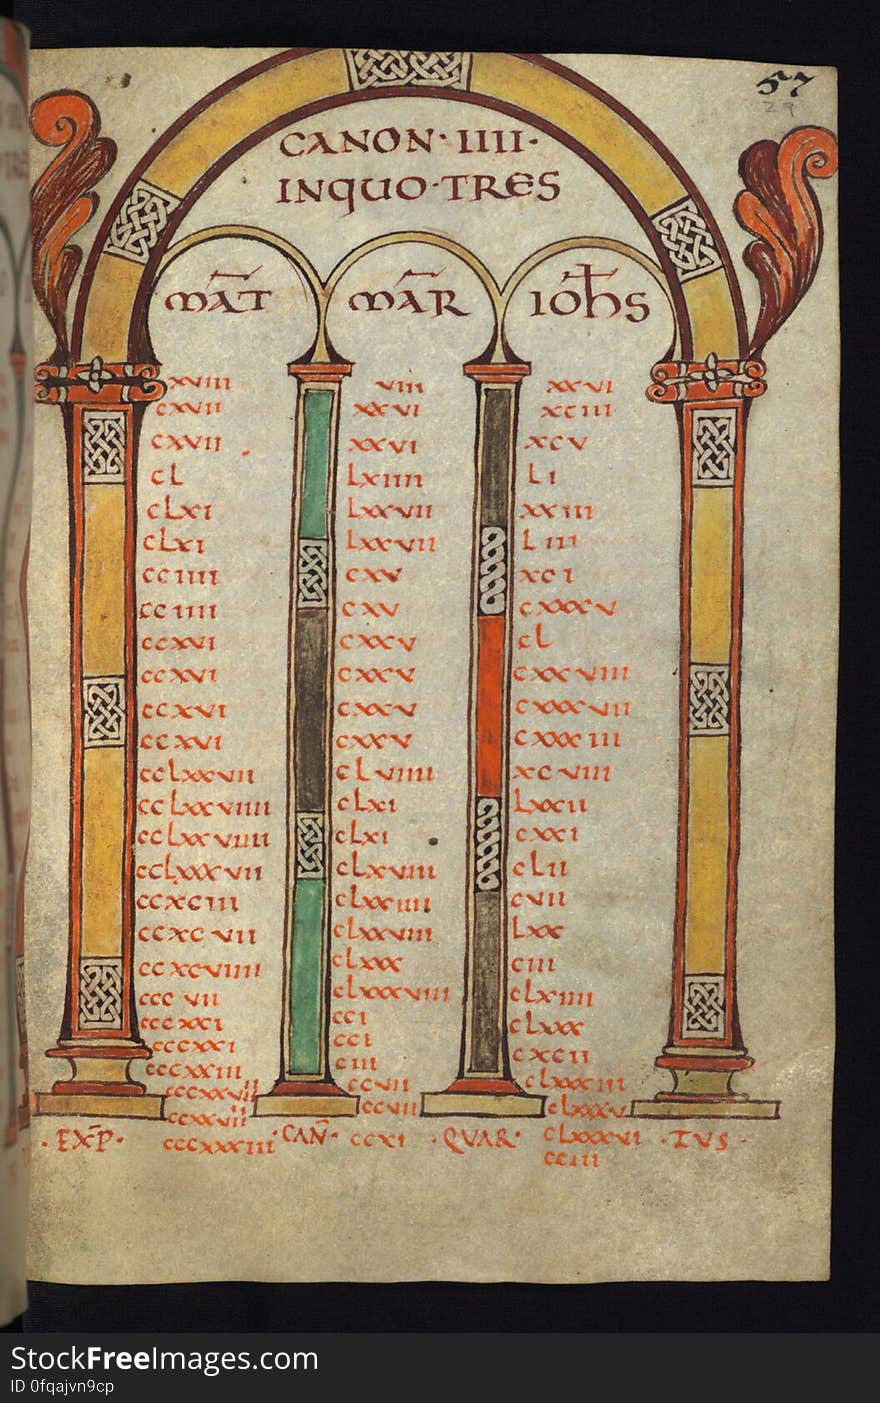 57
29
CANON · IIII ·
IN QUO · TRES
MAT MAR IOHS
xviii viii xxvi
cxvii xxvi xciii
cxvii xxvi xcv
cl lxiiii li
clxi lxxvii xxiii
clxi lxxvii liii
cciiii cxv xci
cciiii cxv cxxxv
ccxvi cxxv cl
ccxvi cxxv cxxviii
ccxvi cxxv cxxxvii
ccxvi cxxv cxxxiii
cclxxvii clviiii xcviii
cclxxviiii clxi lxxii
cclxxviiii clxi cxxi
cclxxxvii clxviii clii
ccxciii clxxiiii cvii
ccxcvii clxxviii lxx
ccxcviiii clxxx ciii
cccvii clxxxviii clxiiii
cccxxi cci clxxx
cccxxi cci cxcii
cccxxiii ciii clxxxiii
cccxxvii ccvii clxxxv
ccxxvii ccvii clxxxvi
cccxxxiii ccxi cciii
· EXP · CAN · QVAR · TVS ·
StockFreeImages.com
ID 0fqajvn9cp